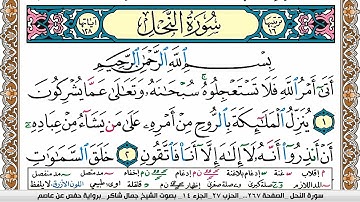 سُورَةُ النَّحْلِ
بِسْمِ ٱللَّهِ ٱلرَّحْمَٰنِ ٱلرَّحِيمِ
أَتَىٰٓ أَمْرُ ٱللَّهِ فَلَا تَسْتَعْجِلُوهُ سُبْحَٰنَهُۥ وَتَعَٰلَىٰ عَمَّا يُشْرِكُونَ
١ يُنَزِّلُ ٱلْمَلَٰٓئِكَةَ بِٱلرُّوحِ مِنْ أَمْرِهِۦ عَلَىٰ مَن يَشَآءُ مِنْ عِبَادِهِۦٓ
أَنْ أَنذِرُوٓا۟ أَنَّهُۥ لَآ إِلَٰهَ إِلَّآ أَنَا۠ فَٱتَّقُونِ ٢ خَلَقَ ٱلسَّمَٰوَٰتِ
سورة النحل الصفحة ٢٦٧ .. الحزب ٢٧ الجزء ١٤ .. بصوت الشيخ جمال شاكر .. برواية حفص عن عاصم